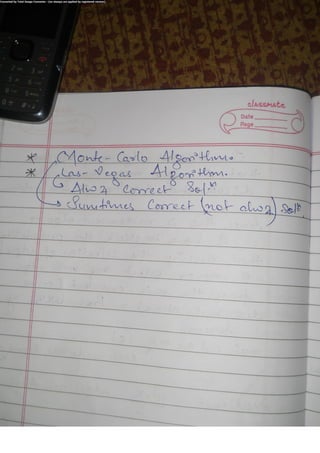 Converted by Total Image Converter - (no stamps are applied by registered version)
classmate
Date
Page
* Monte-Carlo Algorithm.
* Las-Vegas Algorithm.
Alwz Correct Solⁿ
Sumtimes Correct (not alwz) Solⁿ.